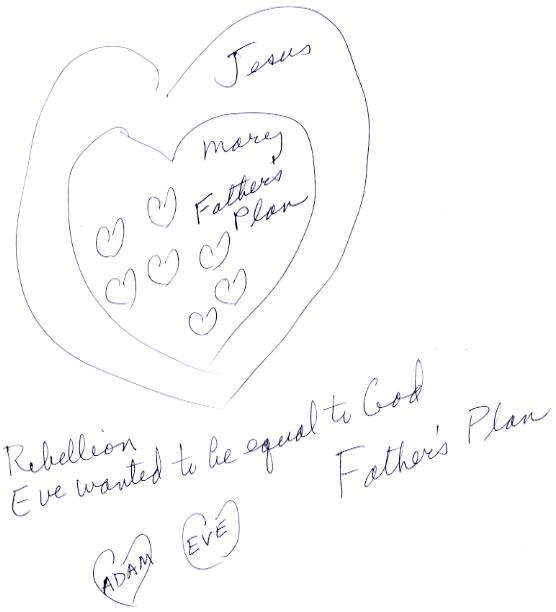 Jesus
Mary
Father's
Plan
Rebellion
Eve wanted to be equal to God
Father's Plan
ADAM
EVE